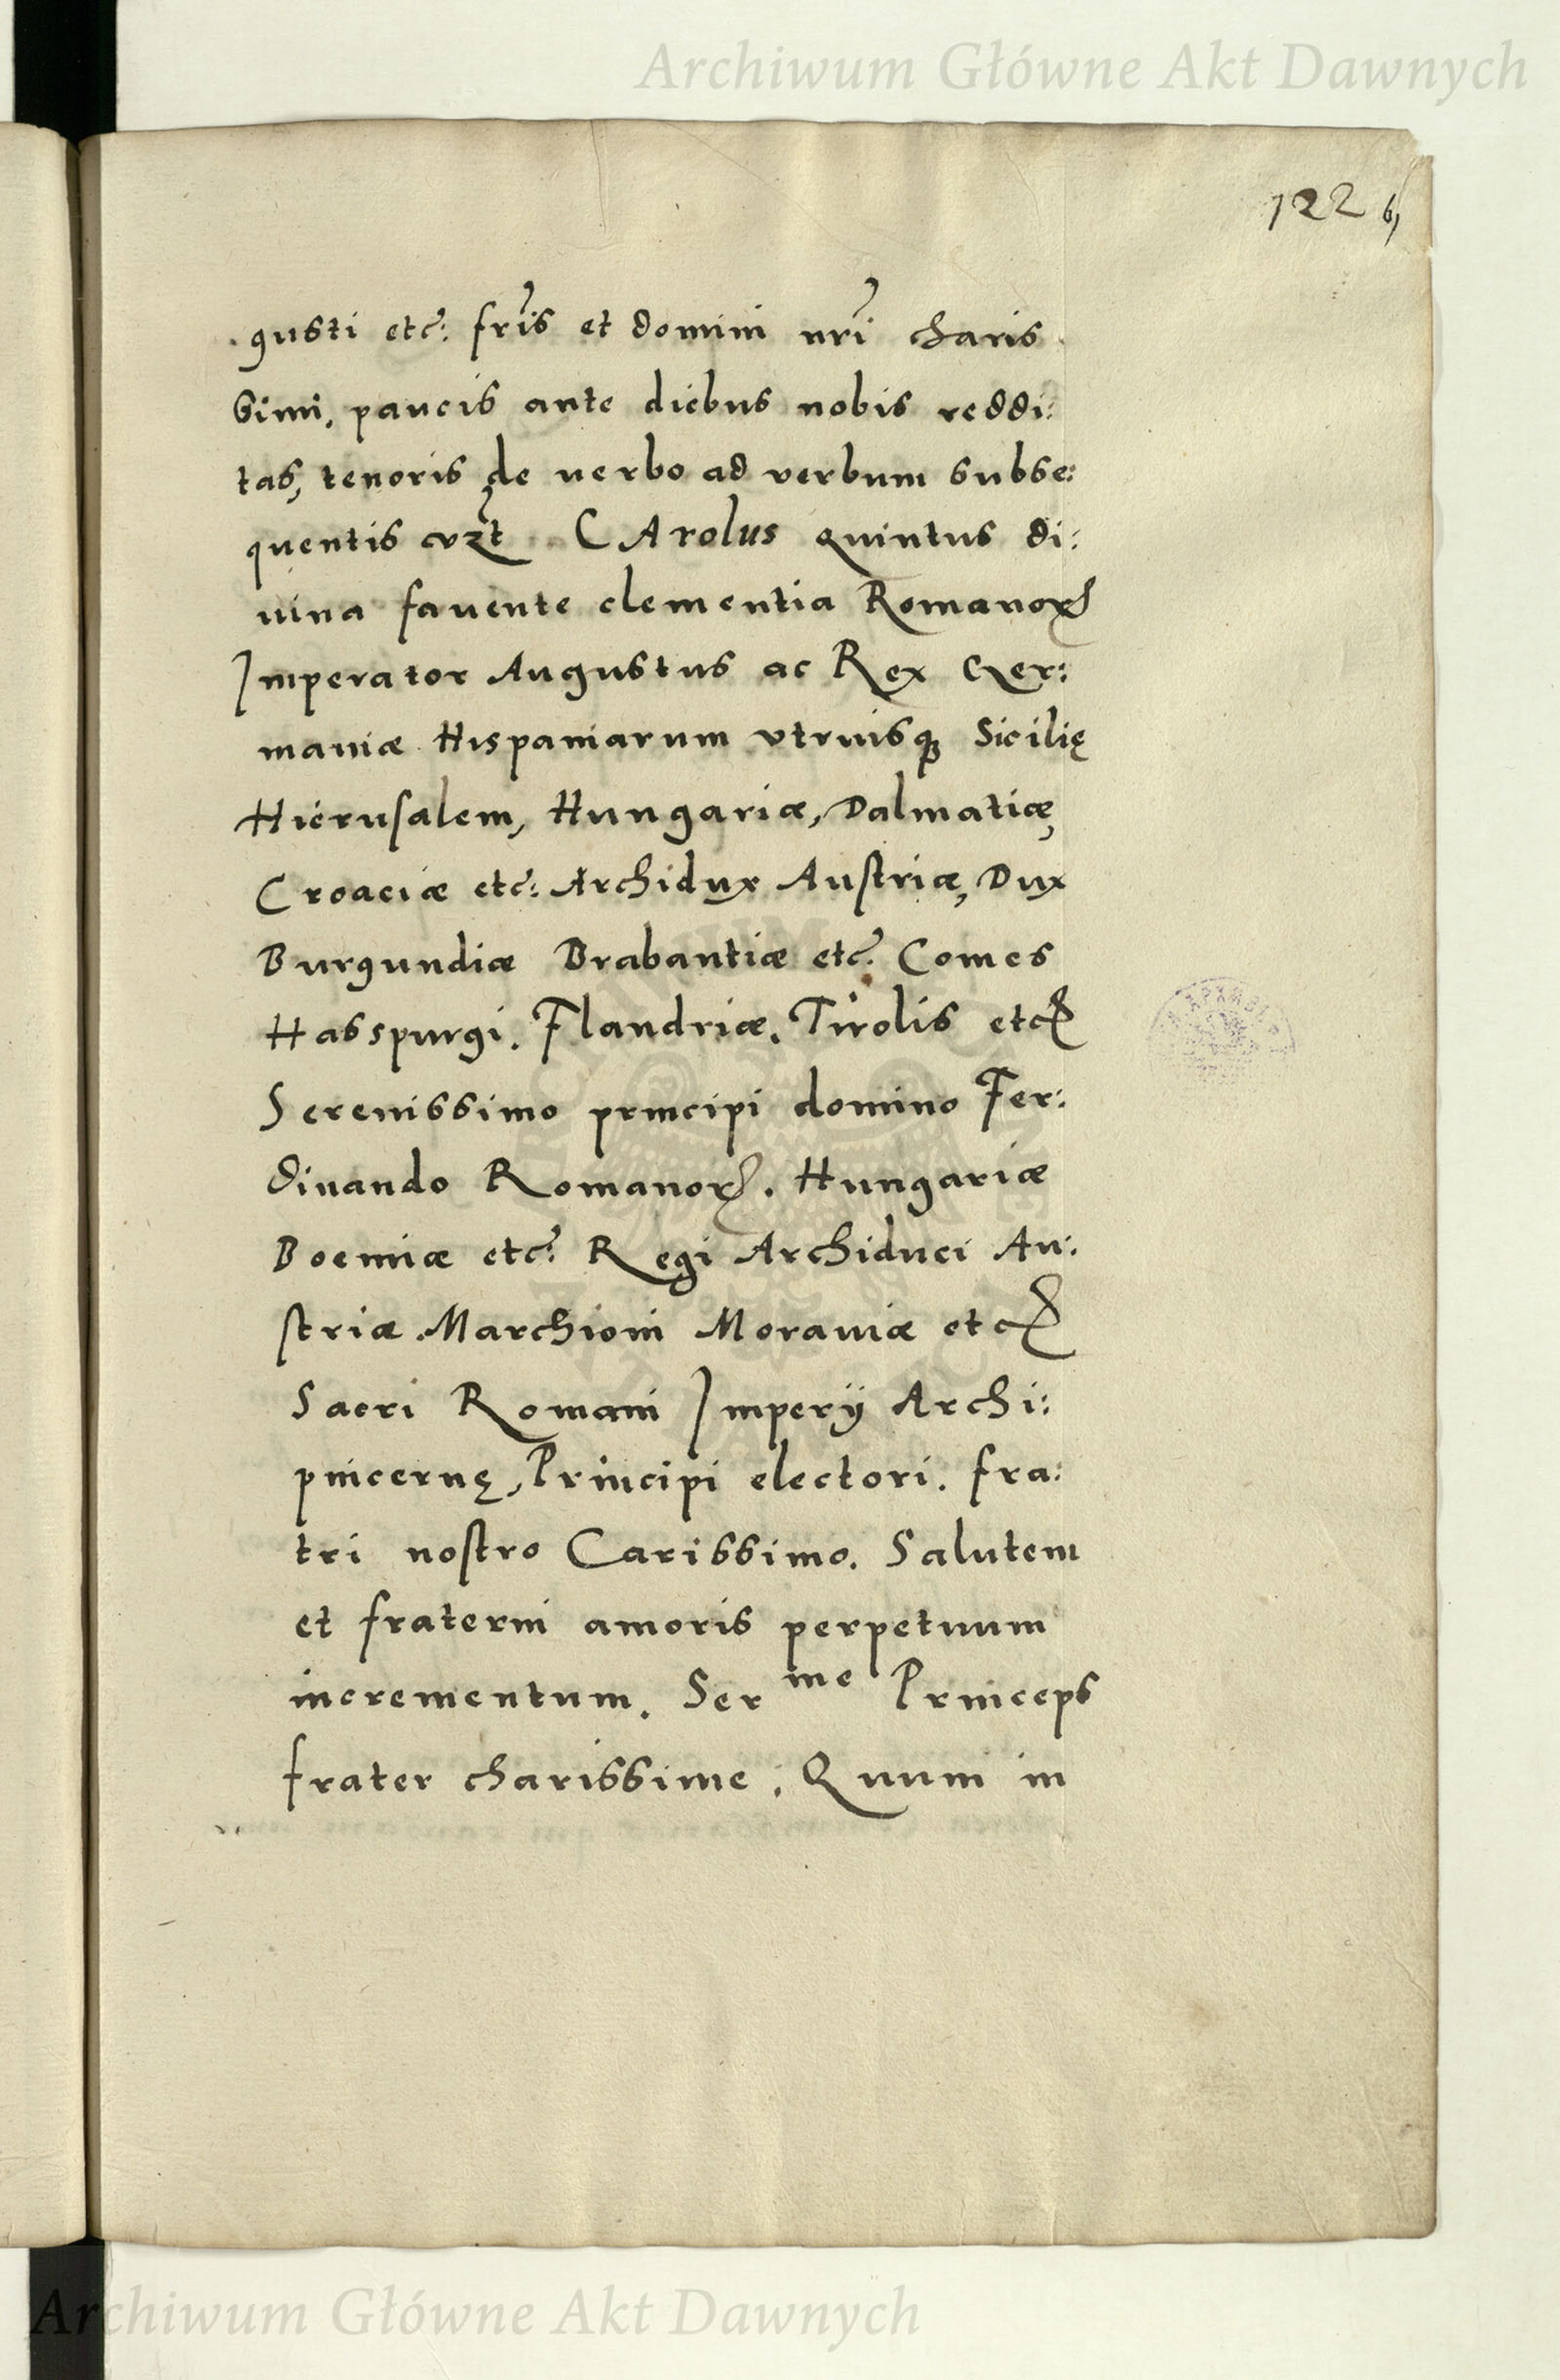 Archiwum Główne Akt Dawnych
122 6
gusti etc: fris et domini nri charis
simi, paucis ante diebus nobis reddi:
tas, tenoris de uerbo ad verbum subse:
quentis CArolus quintus di:
uina fauente clementia Romanorꝝ
Imperator Augustus ac Rex Ger:
maniæ Hispaniarum vtriusqꝫ Sicilię
Hierusalem, Hungariæ, Dalmatiæ,
Croaciæ etc: Archidux Austriæ, Dux
Burgundiæ Brabantiæ etc. Comes
Habspurgi. Flandriæ. Tirolis etc
Serenissimo principi domino Fer:
dinando Romanorꝝ. Hungariæ
Boemiæ etc: Regi Archiduci Au:
striæ Marchioni Morauiæ etc
Sacri Romani Imperij Archi:
pincernę, Principi electori. fra:
tri nostro Carissimo. Salutem
et fraterni amoris perpetuum
incrementum. Ser me Princeps
frater charissime. Quum in
Archiwum Główne Akt Dawnych